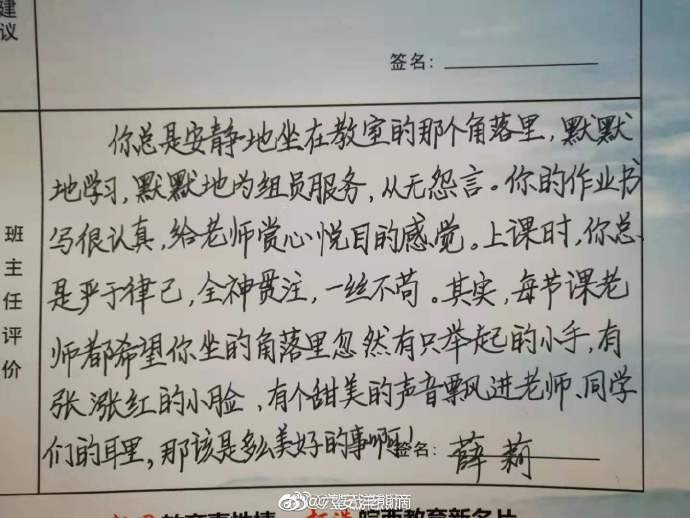 建
议
签名：
你总是安静地坐在教室的那个角落里，默默
地学习，默默地为组员服务，从无怨言。你的作业书
写很认真，给老师赏心悦目的感觉。上课时，你总
是严于律己，全神贯注，一丝不苟。其实，每节课老
师都希望你坐的角落里忽然有只举起的小手，有
张涨红的小脸，有个甜美的声音飘进老师、同学
们的耳里，那该是多么美好的事啊！
签名：薛莉
班主任评价
皖西教育新名片